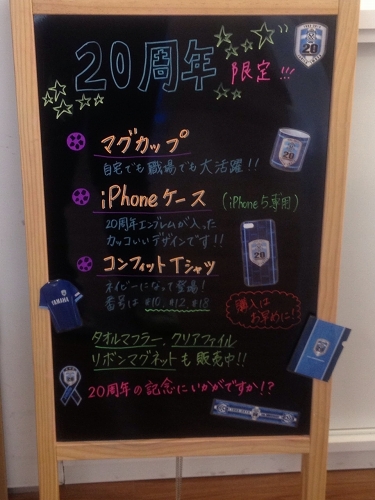 20周年 限定!!!
マグカップ
自宅でも職場でも大活躍!!
iPhoneケース (iPhone5専用)
20周年エンブレムが入った
カッコいいデザインです!!
コンフィットTシャツ
ネイビーになって登場!
番号は #10, #12, #18
購入は
お早めに!
タオルマフラー、クリアファイル
リボンマグネットも販売中!!
20周年の記念にいかがですか!?
20
20
20
YAMAHA